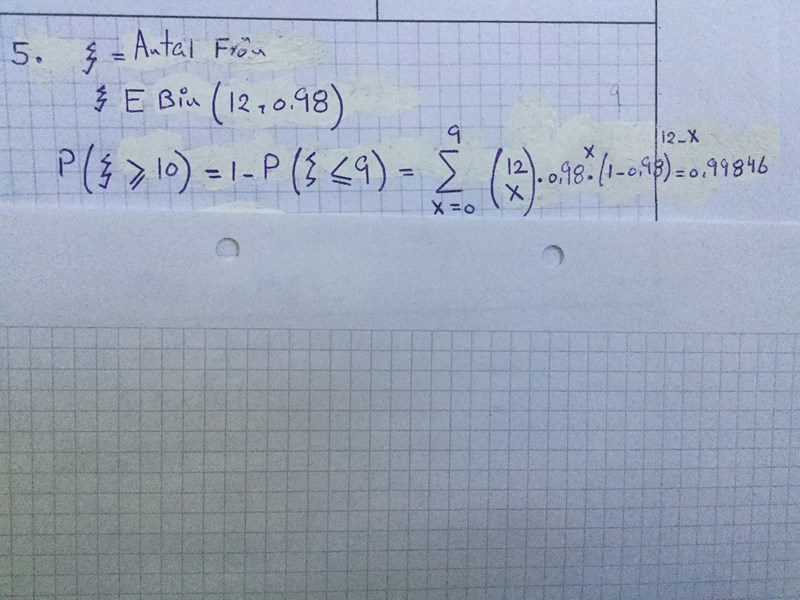 5. ξ = Antal Frön
ξ E Bin (12, 0.98)
P(ξ ⩾ 10) = 1 - P(ξ ≤ 9) = ∑_{x=0}^{9} (12 x) · 0,98^x · (1-0,98)^{12-x} = 0,99846